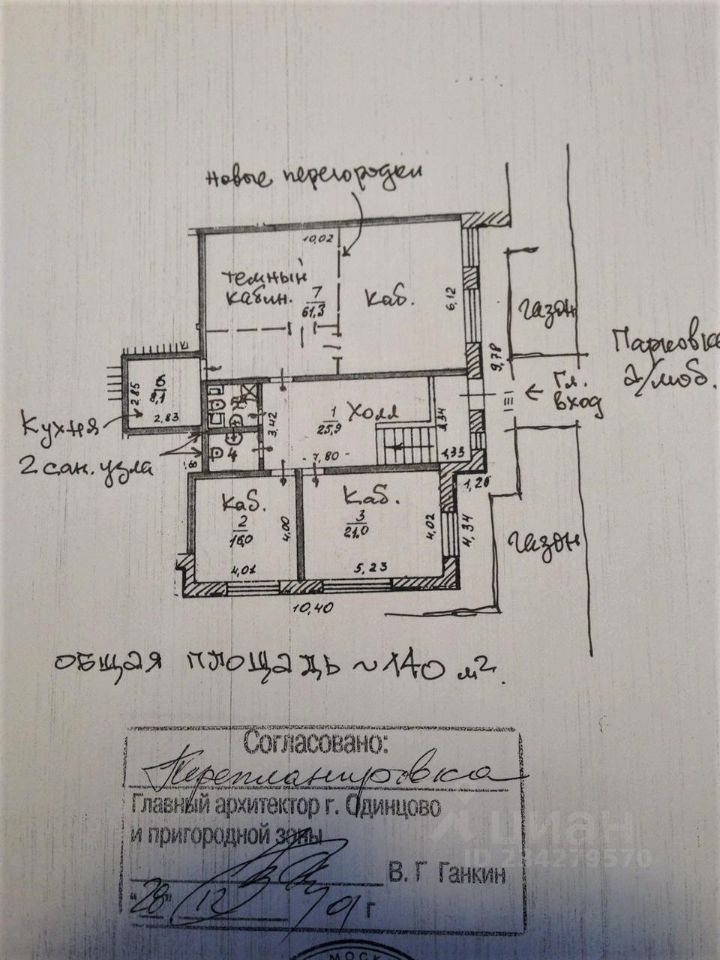 новые перегородки
10,02
темный
кабин.
7
61,3
каб.
6,12
газон
9,78
Парковка
2/моб.
Гл.
вход
6
8,1
2,85
2,83
Кухня
2 сан. узла
4
3,42
1
25,9
Холл
7,80
1,33
1,20
каб.
2
16,0
4,00
4,01
каб.
3
21,0
4,02
4,34
5,23
10,40
газон
общая площадь ~140 м².
Согласовано:
Перепланировка
Главный архитектор г. Одинцово
и пригородной зоны
В. Г Ганкин
"28" /12 /01 г
циан
ID 254279570
МОСК